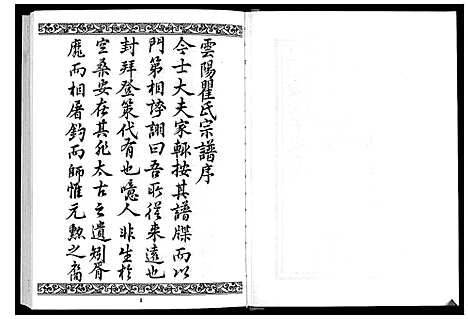 雲陽瞿氏宗譜序
今士大夫家輙按其譜牒而以
門第相誇詡曰吾所從来遠也
封拜登策代有也噫人非生於
空桑安在其非太古之遺矧胥
靡而相屠釣而師惟元勲之裔